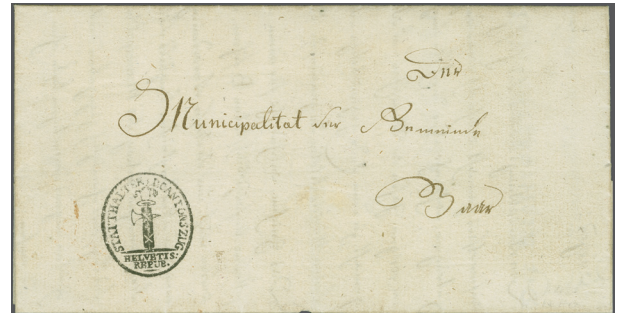 Der
Municipalität der Gemeinde
Baar
STATTHALTER D. CANTONS ZUG.
HELVETIS:
REPUB.